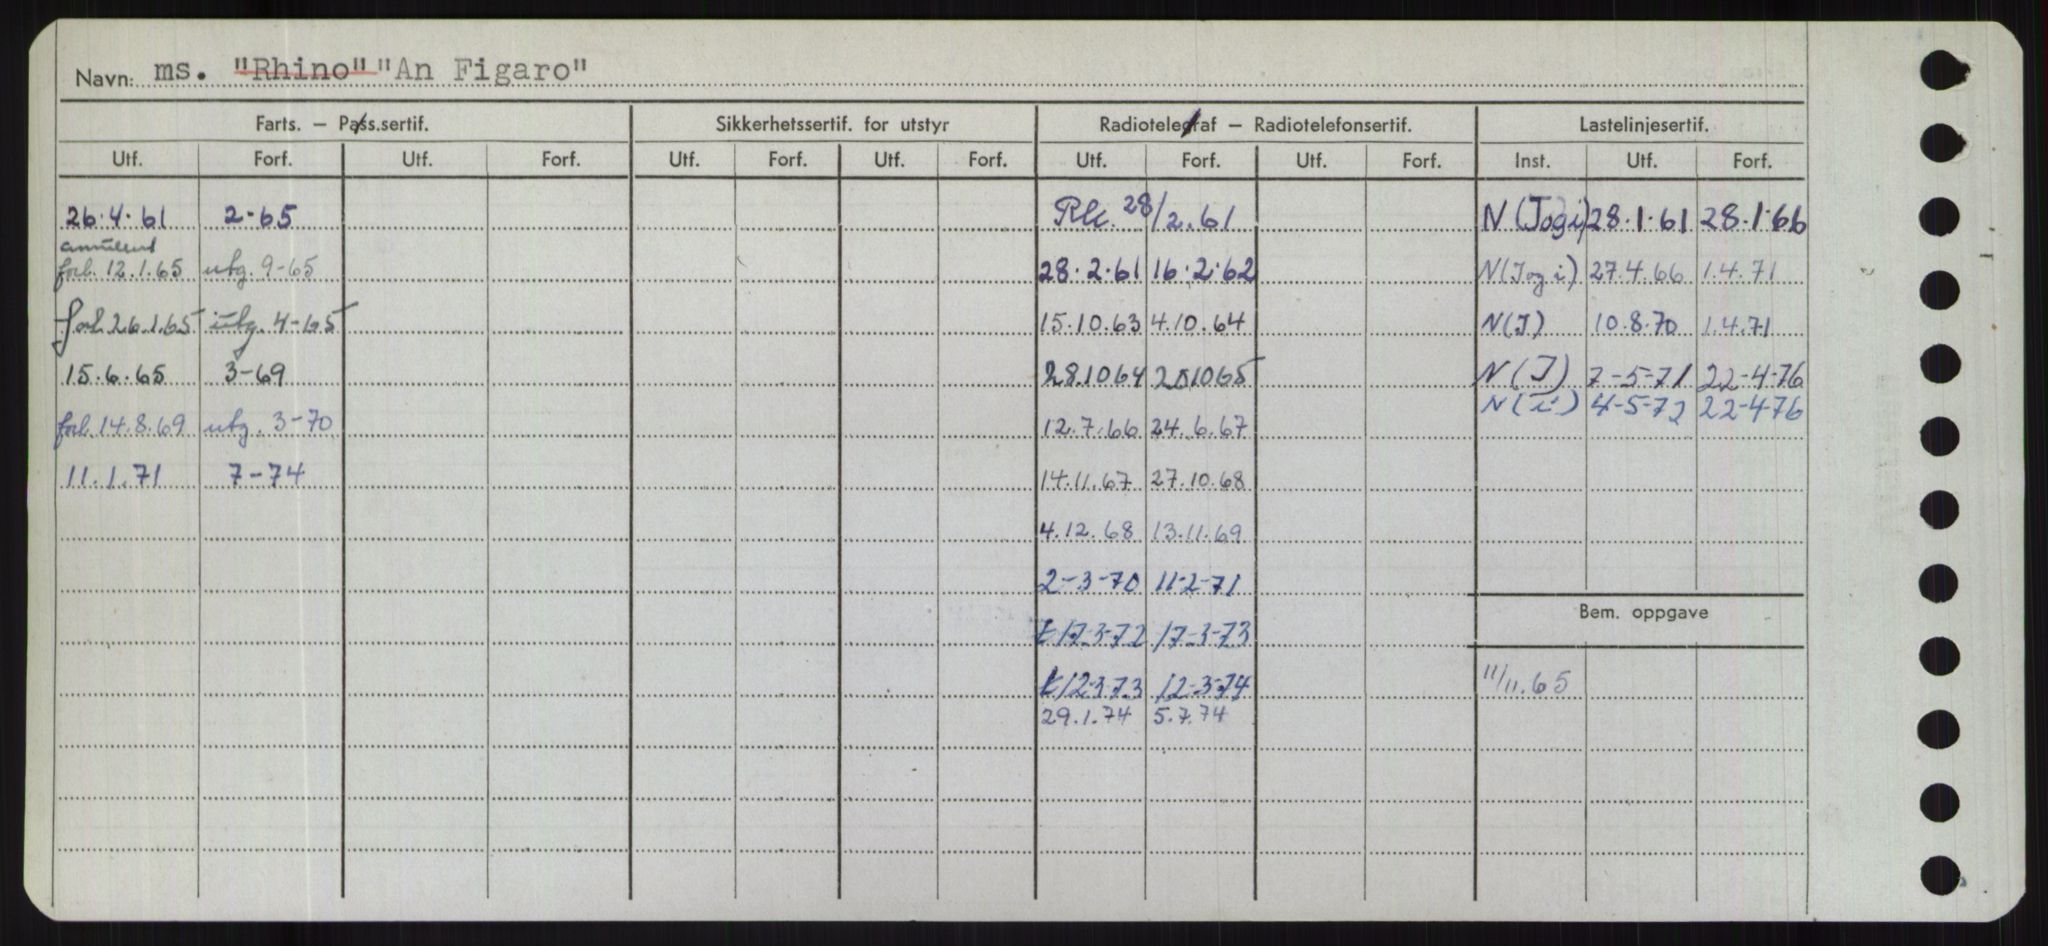 Navn: ms. "Rhino" "An Figaro"
Farts. — Pass.sertif. Sikkerhetssertif. for utstyr Radiotelegraf — Radiotelefonsertif. Lastelinjesertif.
Utf. Forf. Utf. Forf. Utf. Forf. Utf. Forf. Utf. Forf. Utf. Forf. Inst. Utf. Forf.
26.4.61 2-65 Rk. 28/2.61 N (Jogi) 28.1.61 28.1.66
annullert
forl. 12.1.65 utg. 9-65 28.2.61 16.2.62 N (Jog i) 27.4.66 1.4.71
forl. 26.1.65 utg. 4-65 15.10.63 4.10.64 N (J) 10.8.70 1.4.71
15.6.65 3-69 28.10 64 10 65 N (J) 7-5-71 22-4-76
N (i) 4-5-72 22-4-76
forl. 14.8.69 utg. 3-70 12.7.66 24.6.67
11.1.71 7-74 14.11.67 27.10.68
4.12.68 13.11.69
2-3-70 11-2-71
Bem. oppgave
t 17-3-72 17-3-73
t 12-3-73 12-3-74 11/11.65
29.1.74 5.7.74